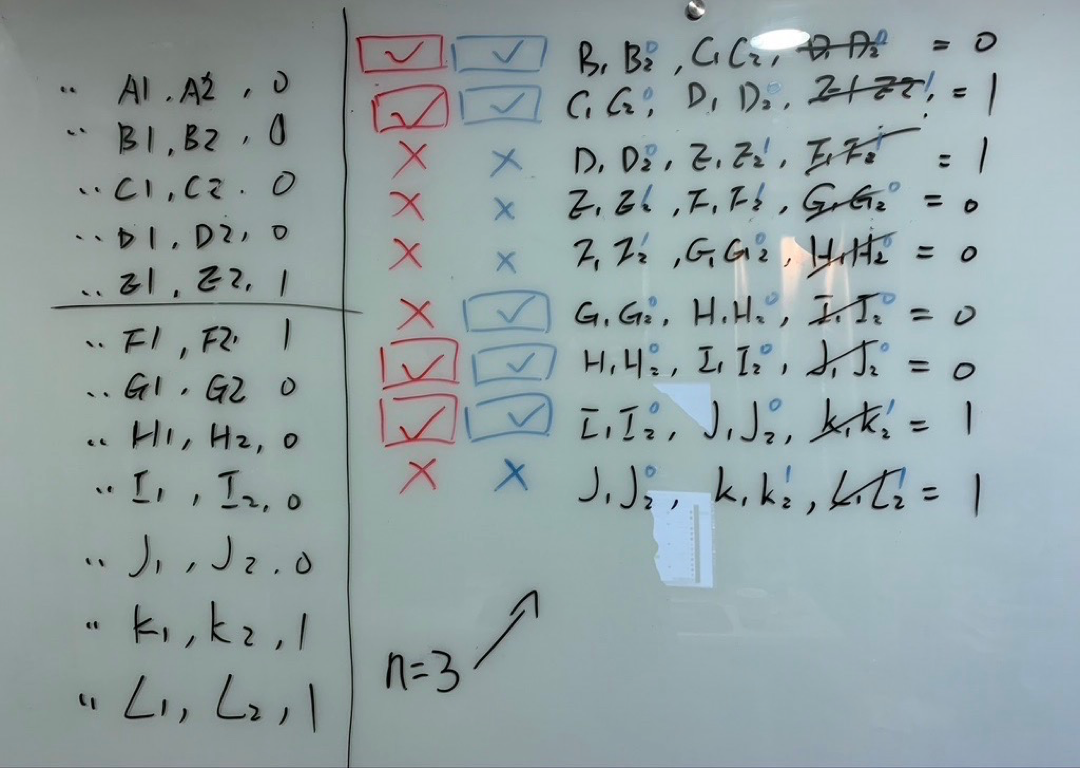 " A1. A2, 0
" B1, B2, 0
" C1, C2. 0
" D1, D2, 0
" Z1, Z2, 1
" F1, F2. 1
" G1. G2 0
" H1, H2, 0
" I1, I2, 0
" J1, J2. 0
" K1, K2, 1
" L1, L2, 1
✓ ✓ B1 B2 0, C1 C2, D1 D2 0 = 0
✓ ✓ C1 C2 0, D1 D2 0, Z1 Z2 1, = 1
× × D1 D2 0, Z1 Z2 1, F1 F2 1 = 1
× × Z1 Z2 1, F1 F2 1, G1 G2 0 = 0
× × Z1 Z2 1, G1 G2 0, H1 H2 0 = 0
× ✓ G1 G2 0, H1 H2 0, I1 I2 0 = 0
✓ ✓ H1 H2 0, I1 I2 0, J1 J2 0 = 0
✓ ✓ I1 I2 0, J1 J2 0, K1 K2 1 = 1
× × J1 J2 0, K1 K2 1, L1 L2 1 = 1
n=3